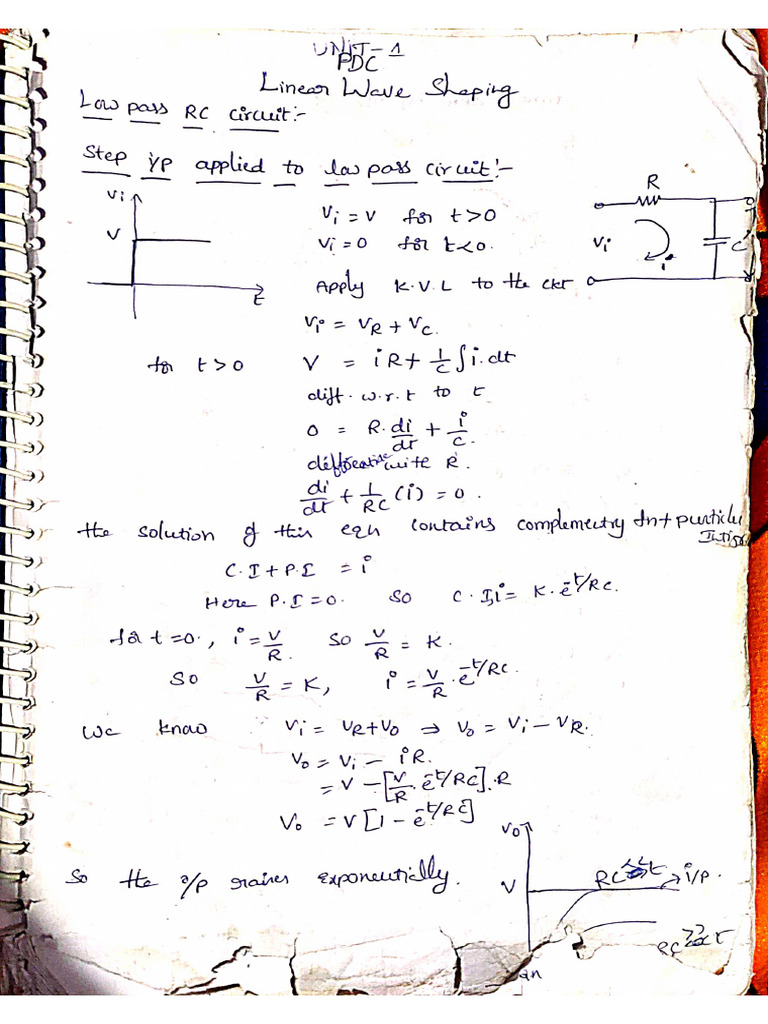 UNIT-1
PDC
Linear Wave Shaping
Low pass RC circuit:-
Step i/p applied to low pass circuit:-
Vi
V
t
Vi = V for t>0
Vi = 0 for t<0.
R
Vi
i
C
Apply K.V.L to the ckt
Vi = VR + VC.
for t>0 V = iR + 1/C ∫i.dt
diff. w.r.t to t
0 = R.di/dt + i/C.
with R.
di/dt + 1/RC (i) = 0.
the solution of this eqn contains
C.I + P.I = i
Here P.I = 0. So C.I, i = K.e^-t/RC.
for t=0, i = V/R. So V/R = K.
So V/R = K, i = V/R.e^-t/RC.
We know Vi = VR+Vo ⇒ Vo = Vi - VR.
Vo = Vi - iR.
= V - [V/R.e^-t/RC].R
Vo = V[1 - e^-t/RC]
So the o/p raises exponentially.
Vo
V
RC << t
i/p.